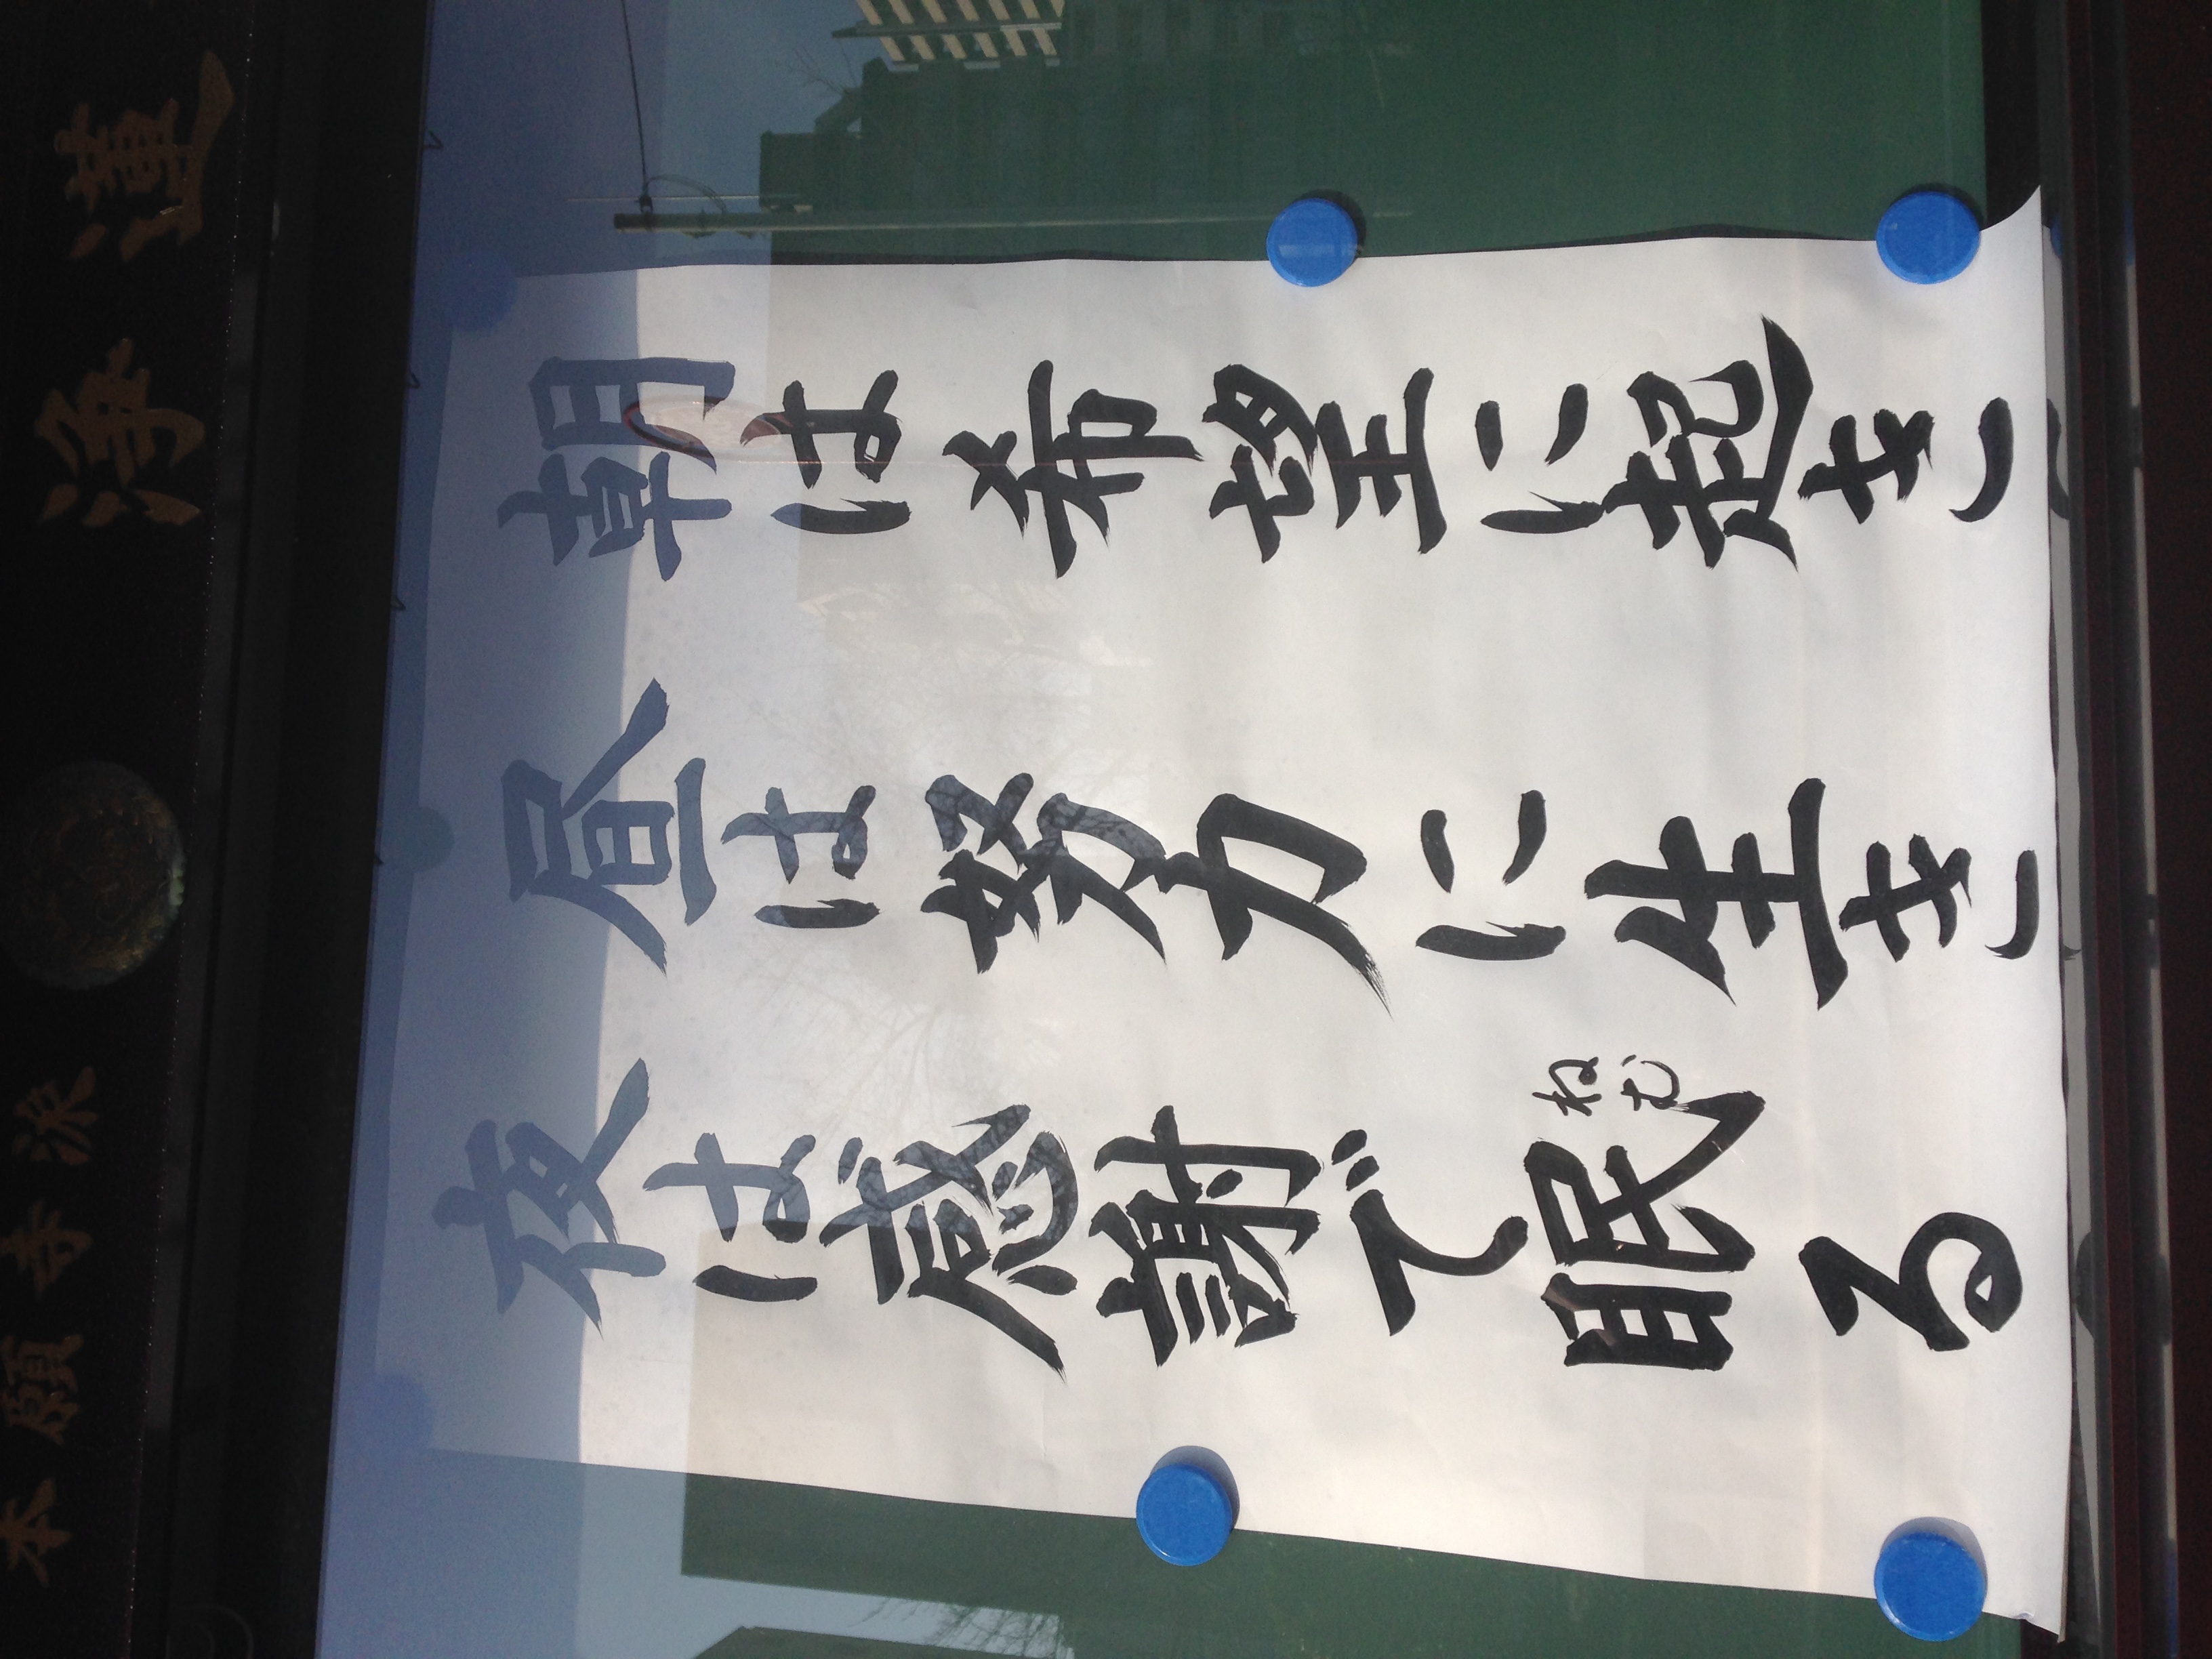 本願寺派 浄蓮
朝は希望に起き
昼は努力に生き
夜は感謝で眠る
ねむ